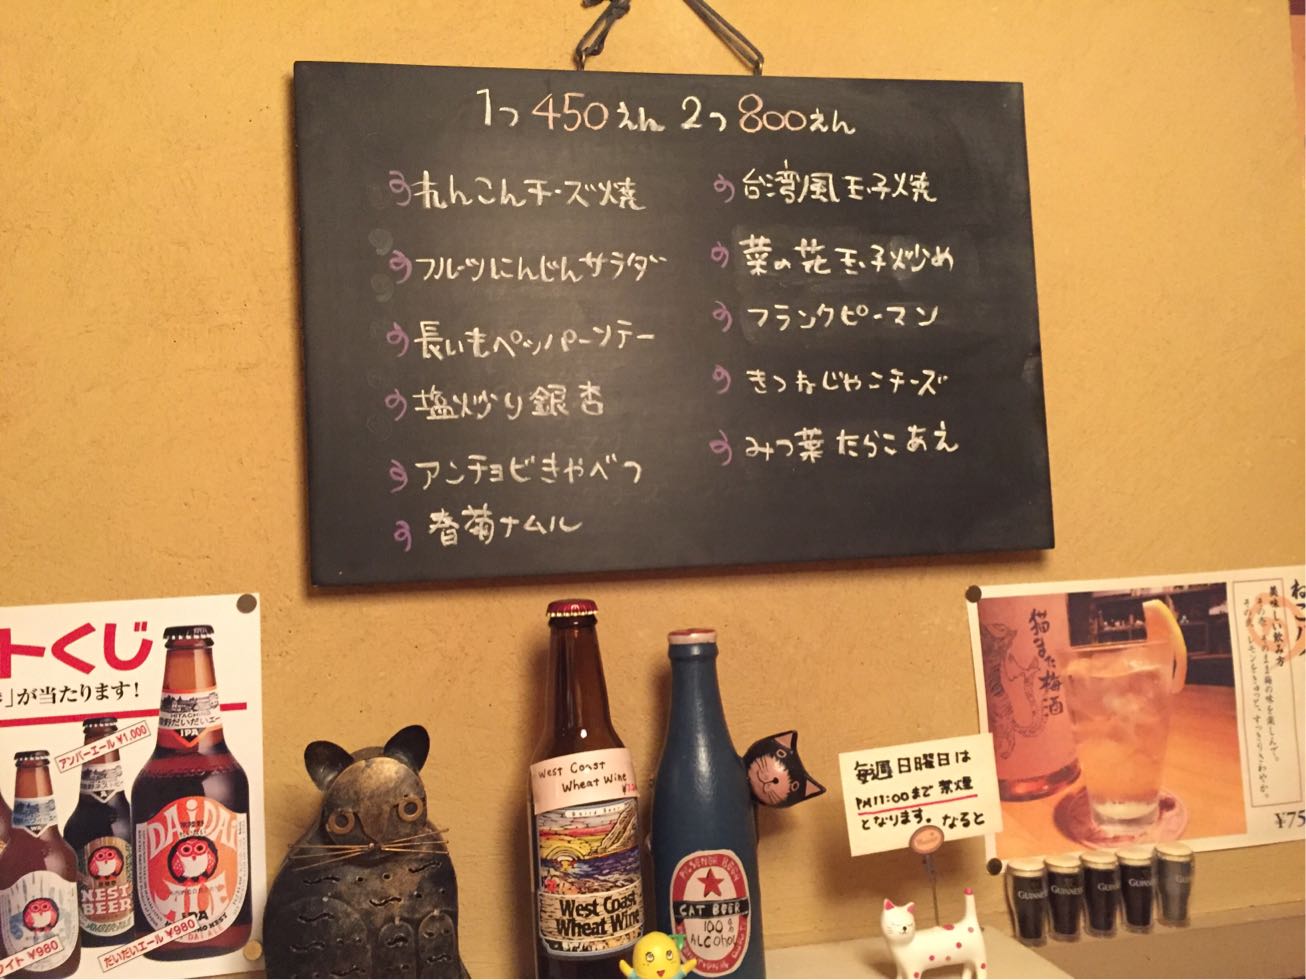 1つ 450えん 2つ 800えん
れんこんチーズ焼
フルーツにんじんサラダ
長いもペッパーソテー
塩炒り銀杏
アンチョビきゃべつ
春菊ナムル
台湾風玉子焼
菜の花玉子炒め
フランクピーマン
きつねじゃこチーズ
みつ葉たらこあえ
トくじ
」が当たります!
アンバーエール ¥1,000
HITACHINO
野だいだいエー
IPA
DAiDAi
IPA
NEST
BEER
イト ¥980
だいだいエール ¥980
West Coast
Wheat Wine
West Coast
Wheat Wine
PILSENER BEER
CAT BEER
100%
ALCohol
毎週日曜日は
PM11:00まで禁煙
となります。なると
猫また梅酒
美味しい飲み方
¥75
GUINNESS
GUINNESS
GUINNESS
GUINNESS